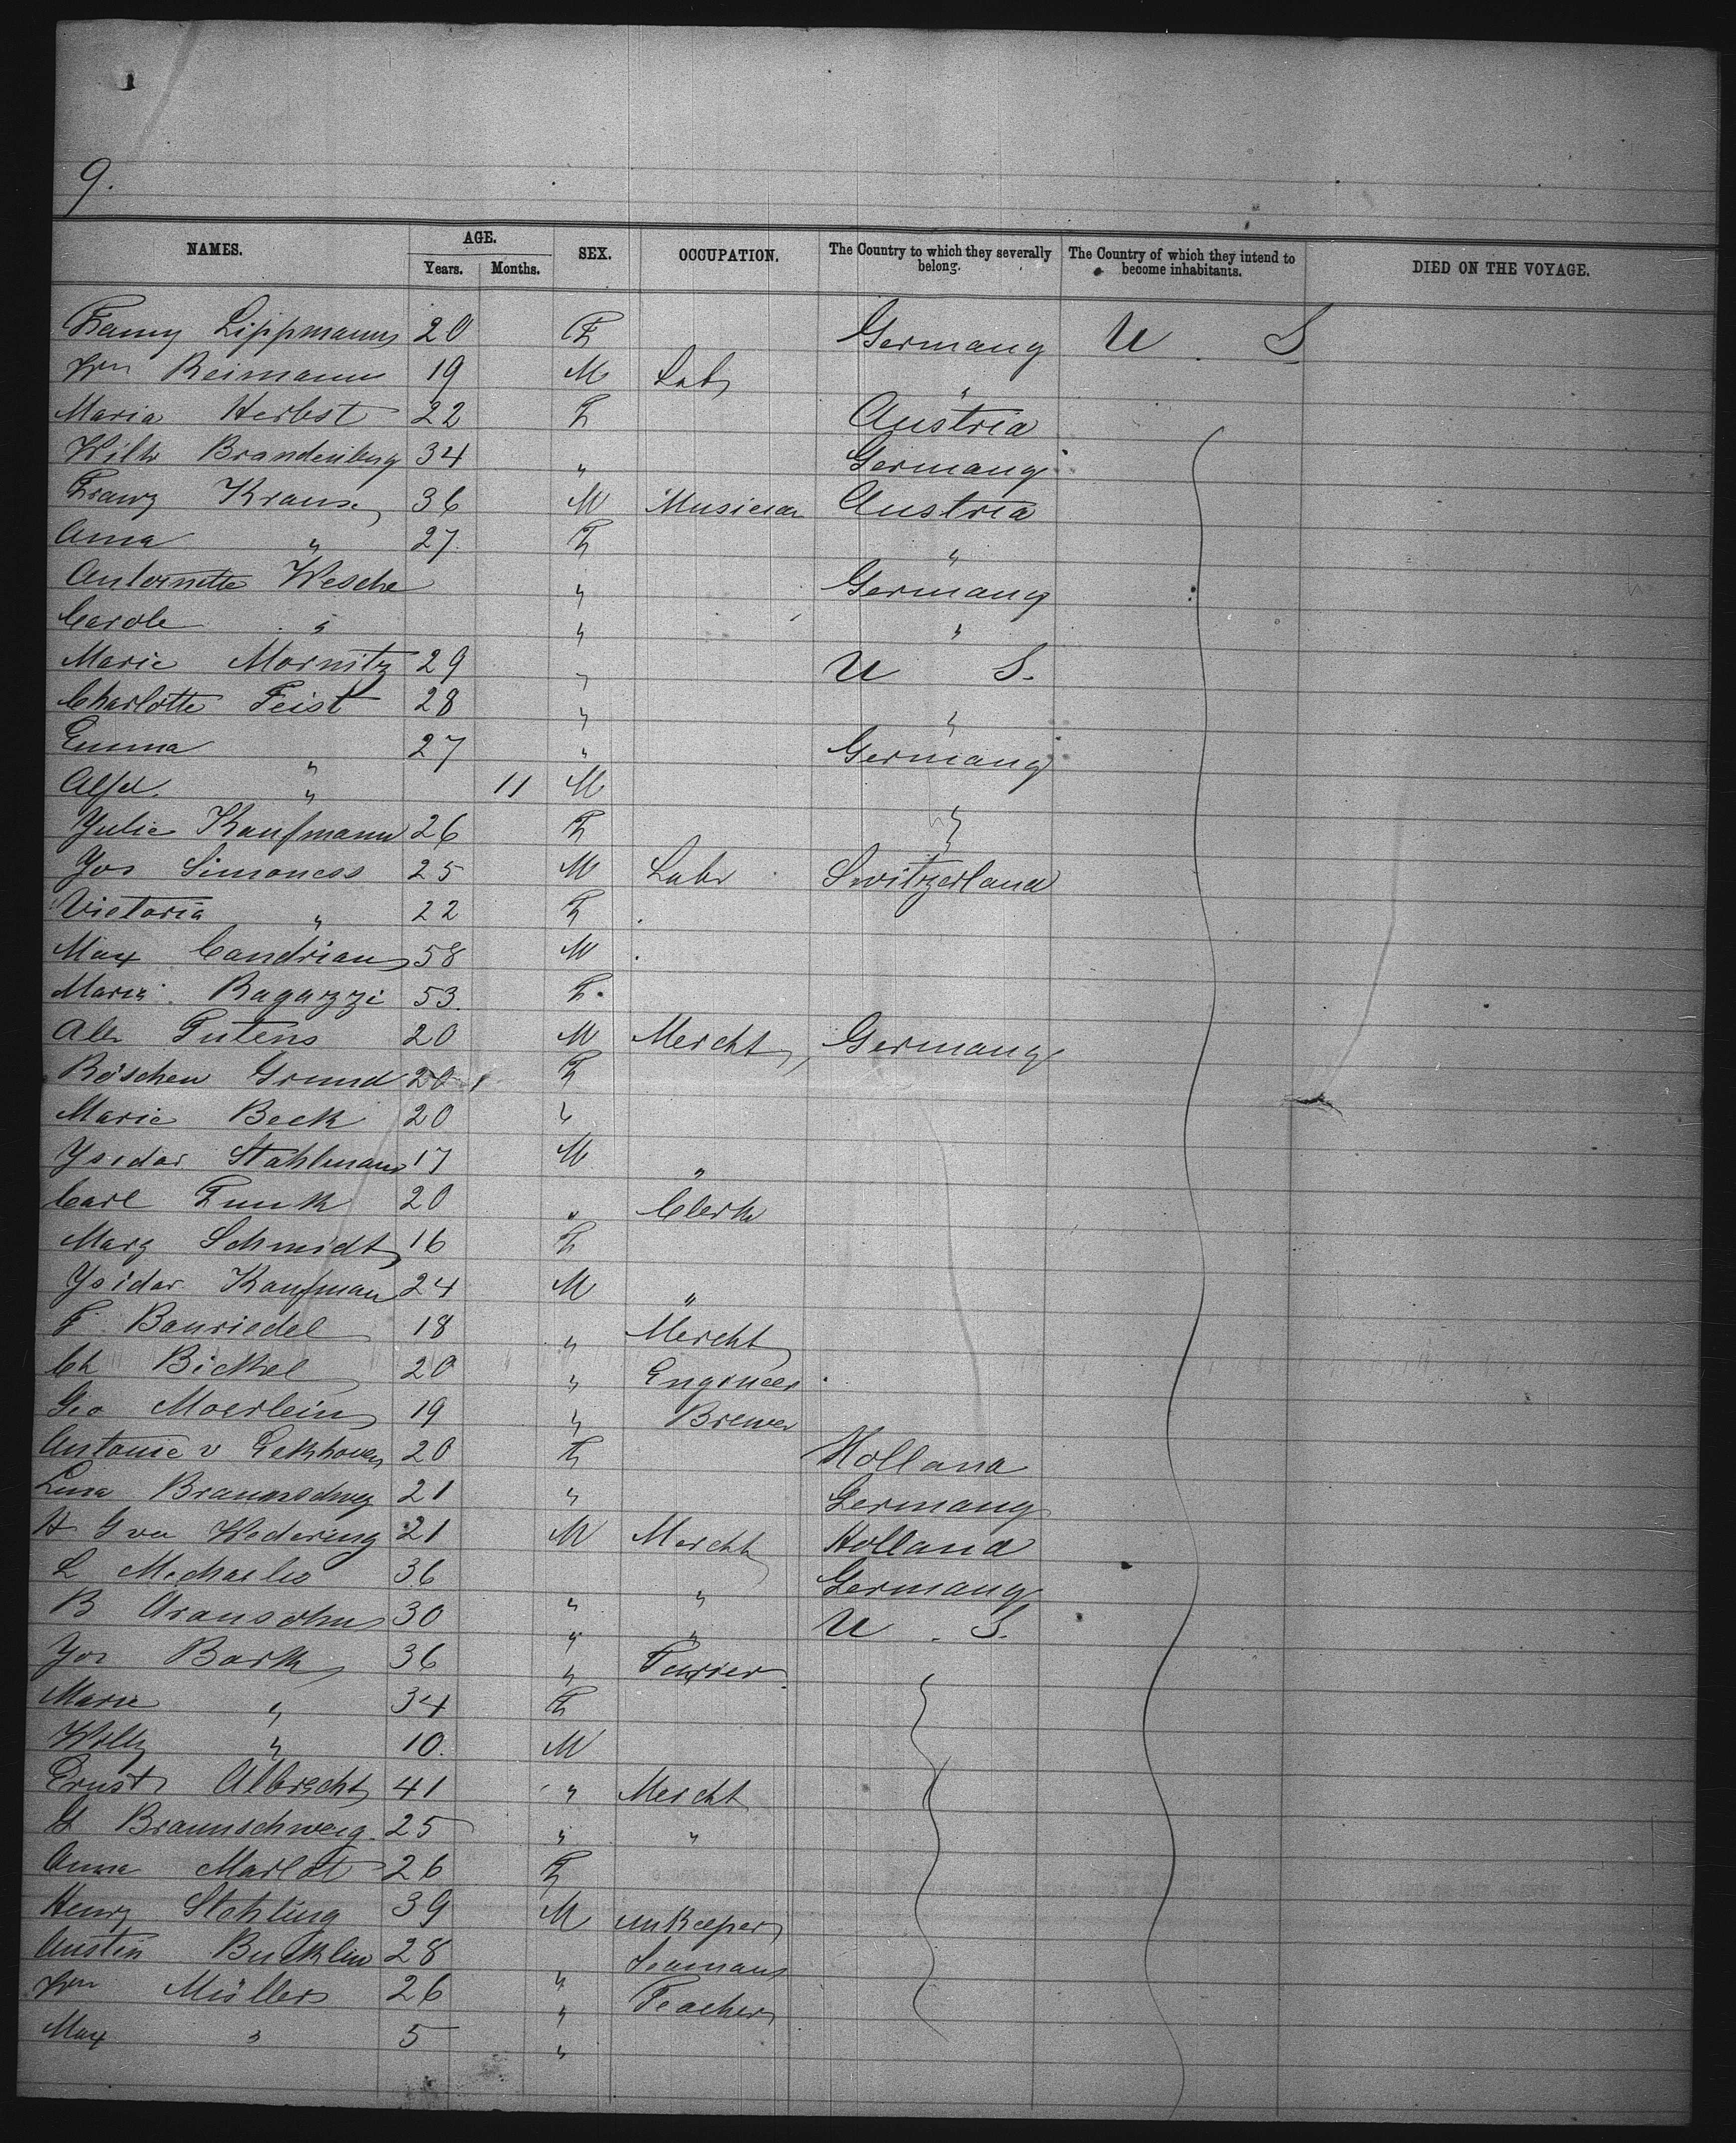 9.
NAMES. AGE. SEX. OCCUPATION. The Country to which they severally belong. The Country of which they intend to become inhabitants. DIED ON THE VOYAGE.
Years. Months.
Fanny Lippmann 20 F Germany U. S
Wm Reimann 19 M Labr "
Maria Herbst 22 F Austria
Wilh Brandenburg 34 " Germany
Franz Kraus 36 M Musician Austria
Anna " 27 F "
Antoinette Wesche " Germany
Carole " " "
Marie Mornitz 29 " U S.
Charlotte Feist 28 " "
Emma " 27 " Germany
Alfd. " 11 M
Julie Kaufmann 26 F "
Jos Simoness 25 M Labr Switzerland
Victoria " 22 F
Max Candrian 58 M
Maria Ragazzi 53 F.
Alb 20 M Mercht Germany
Röschen Grund 20 F
Marie Beck 20 "
Ysidor Stahlmann 17 M "
Carl Funk 20 " Clerk
Marg Schmidt 16 F
Ysidor Kaufman 24 M "
F. Bauriedel 18 " Mercht
Ch Bickel 20 " Engineer
Geo Moerlein 19 " Brewer
Antonie v 20 F Holland
Lina Braunschwg 21 " Germany
H G van Wedering 21 M Mercht Holland
L Michaelis 36 " " Germany
B Aransohn 30 " " U. S.
Jos Bark 36 " Farrier
Marie " 34 F
Willy " 10. M
Ernst Albrecht 41 " Mercht
Braunschweig 25 " "
Anna Marlot 26 F
Henry Stehling 39 M innkeeper
Austin Bucklin 28 " Seaman
Wm Müller 26 " Teacher
Max " 5 "